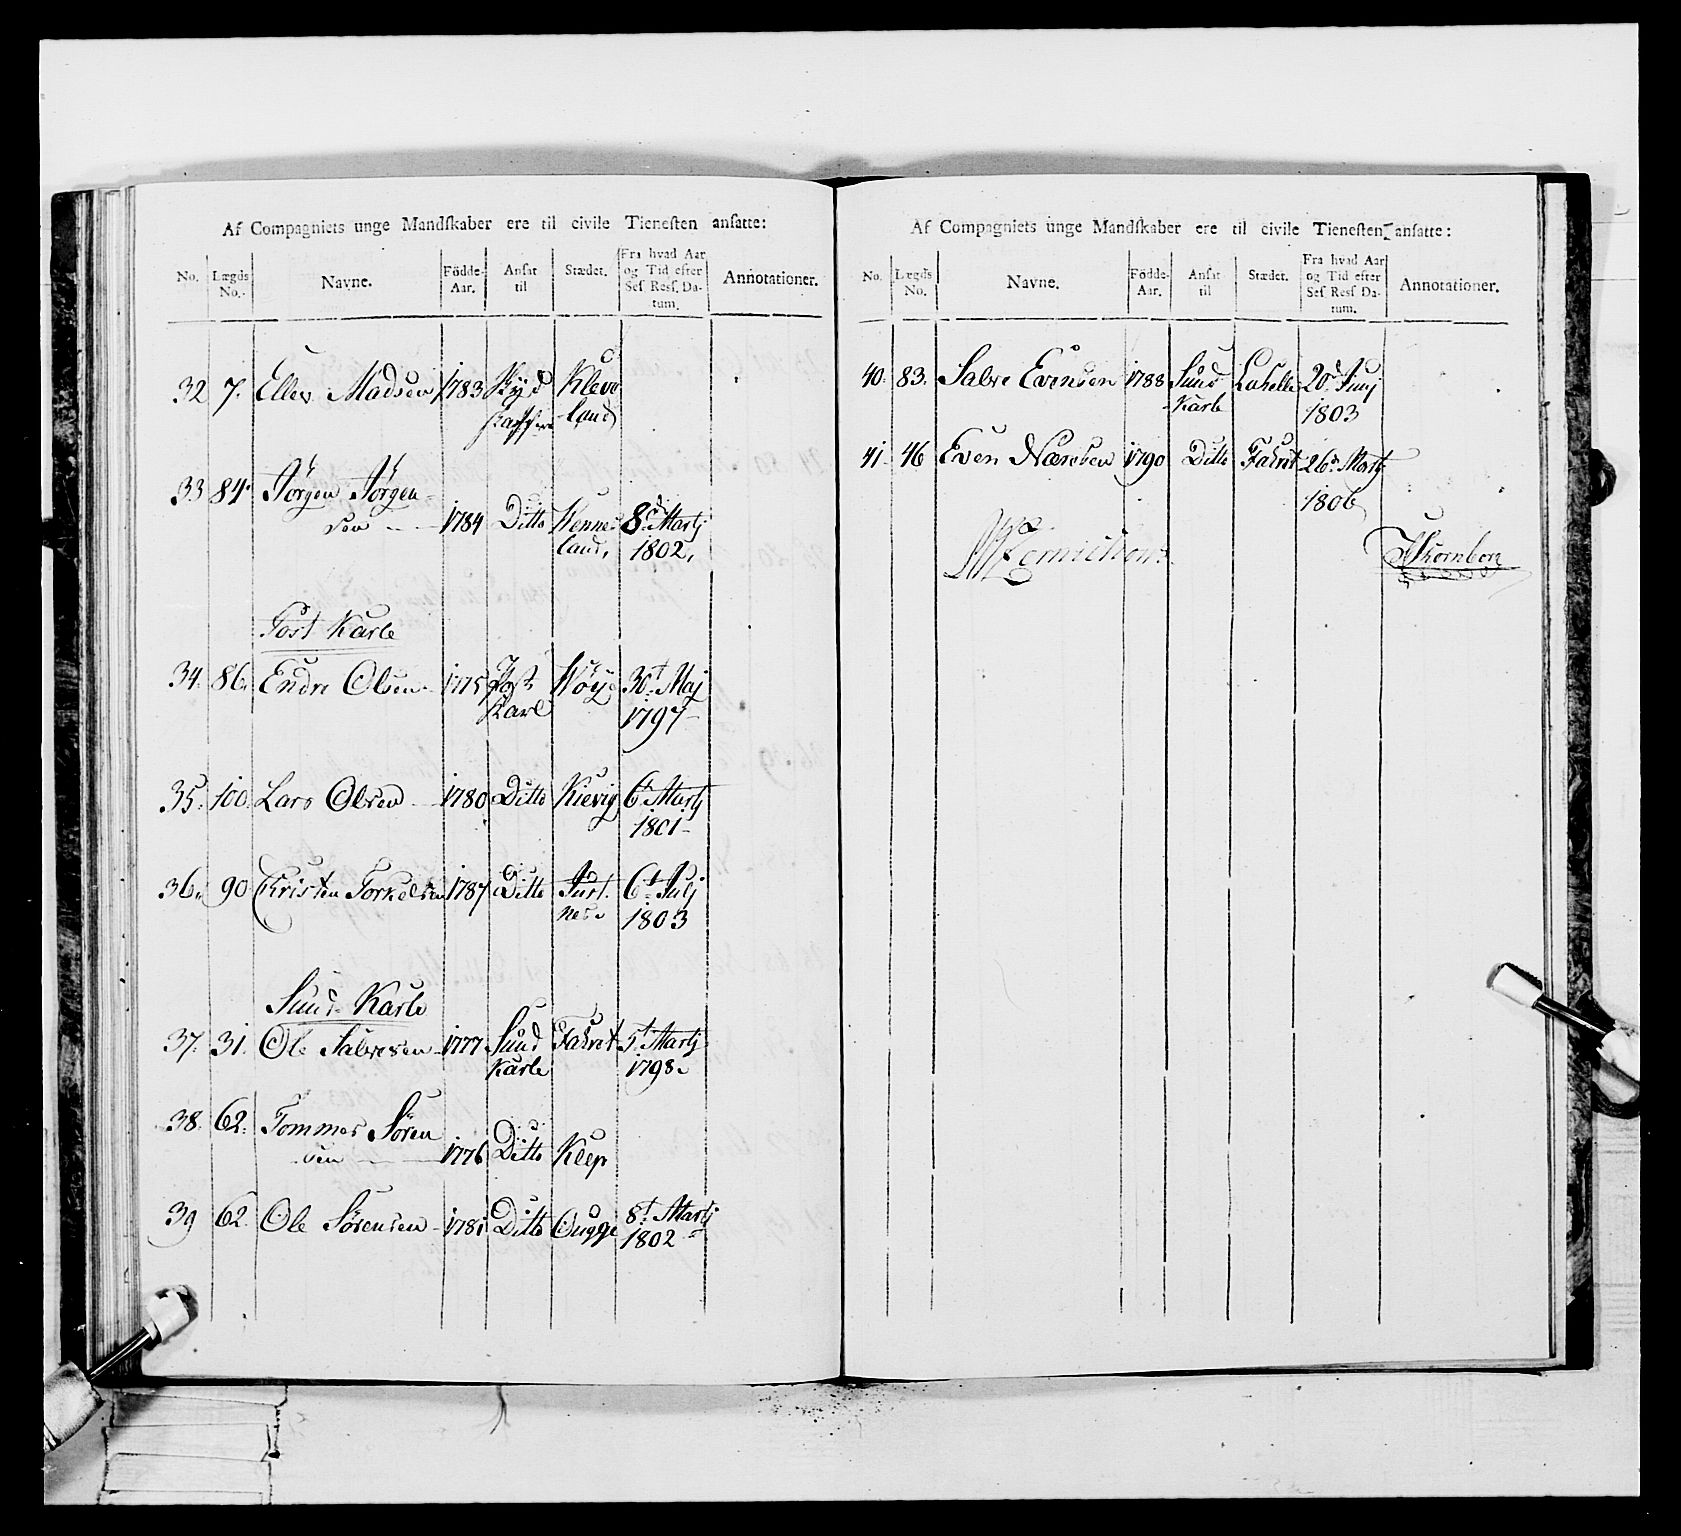 Af Compagniets unge Mandſkaber ere til civile Tieneſten anſatte:
No. Lægds No. Navne. Födde-Aar. Anſat til Stædet. Fra hvad Aar og Tid efter Seſ Reſſ. Datum. Annotationer.
32 7. Ellev Madsen 1783 Kleve
land
33 84. Jörgen Jörgen-
sen 1784 Ditto Kenne- 8d Martj
land, 1802,
Post Karle
34. 86. Endre Olsen 1775 Post Höye 30t Maj
Karl 1797
35. 100. Lars Olsen 1780 Ditto Kievig 6t Martj
1801
36. 90 Christen Torkelsen 1787 Ditto 6t Julj
nes 1803
Sund Karle
37. 31. Ole Salvesen 1777 Sund Fahret 5t Martj
Karle 1798.
38. 62. Tommes Sören
sen 1776 Ditto Klep
39 62. Ole Sörensen 1781 Ditto Ougge 8t Martj
1802
Af Compagniets unge Mandſkaber ere til civile Tieneſten anſatte:
No. Lægds No. Navne. Födde-Aar. Anſat til Stædet. Fra hvad Aar og Tid efter Seſ Reſſ Datum. Annotationer.
40. 83. Salve Evensen 1788 Sund Lahelle 20d Junj
Karle 1803
41. 46 Even 1790 Ditto Fahret 26d Martj
1806